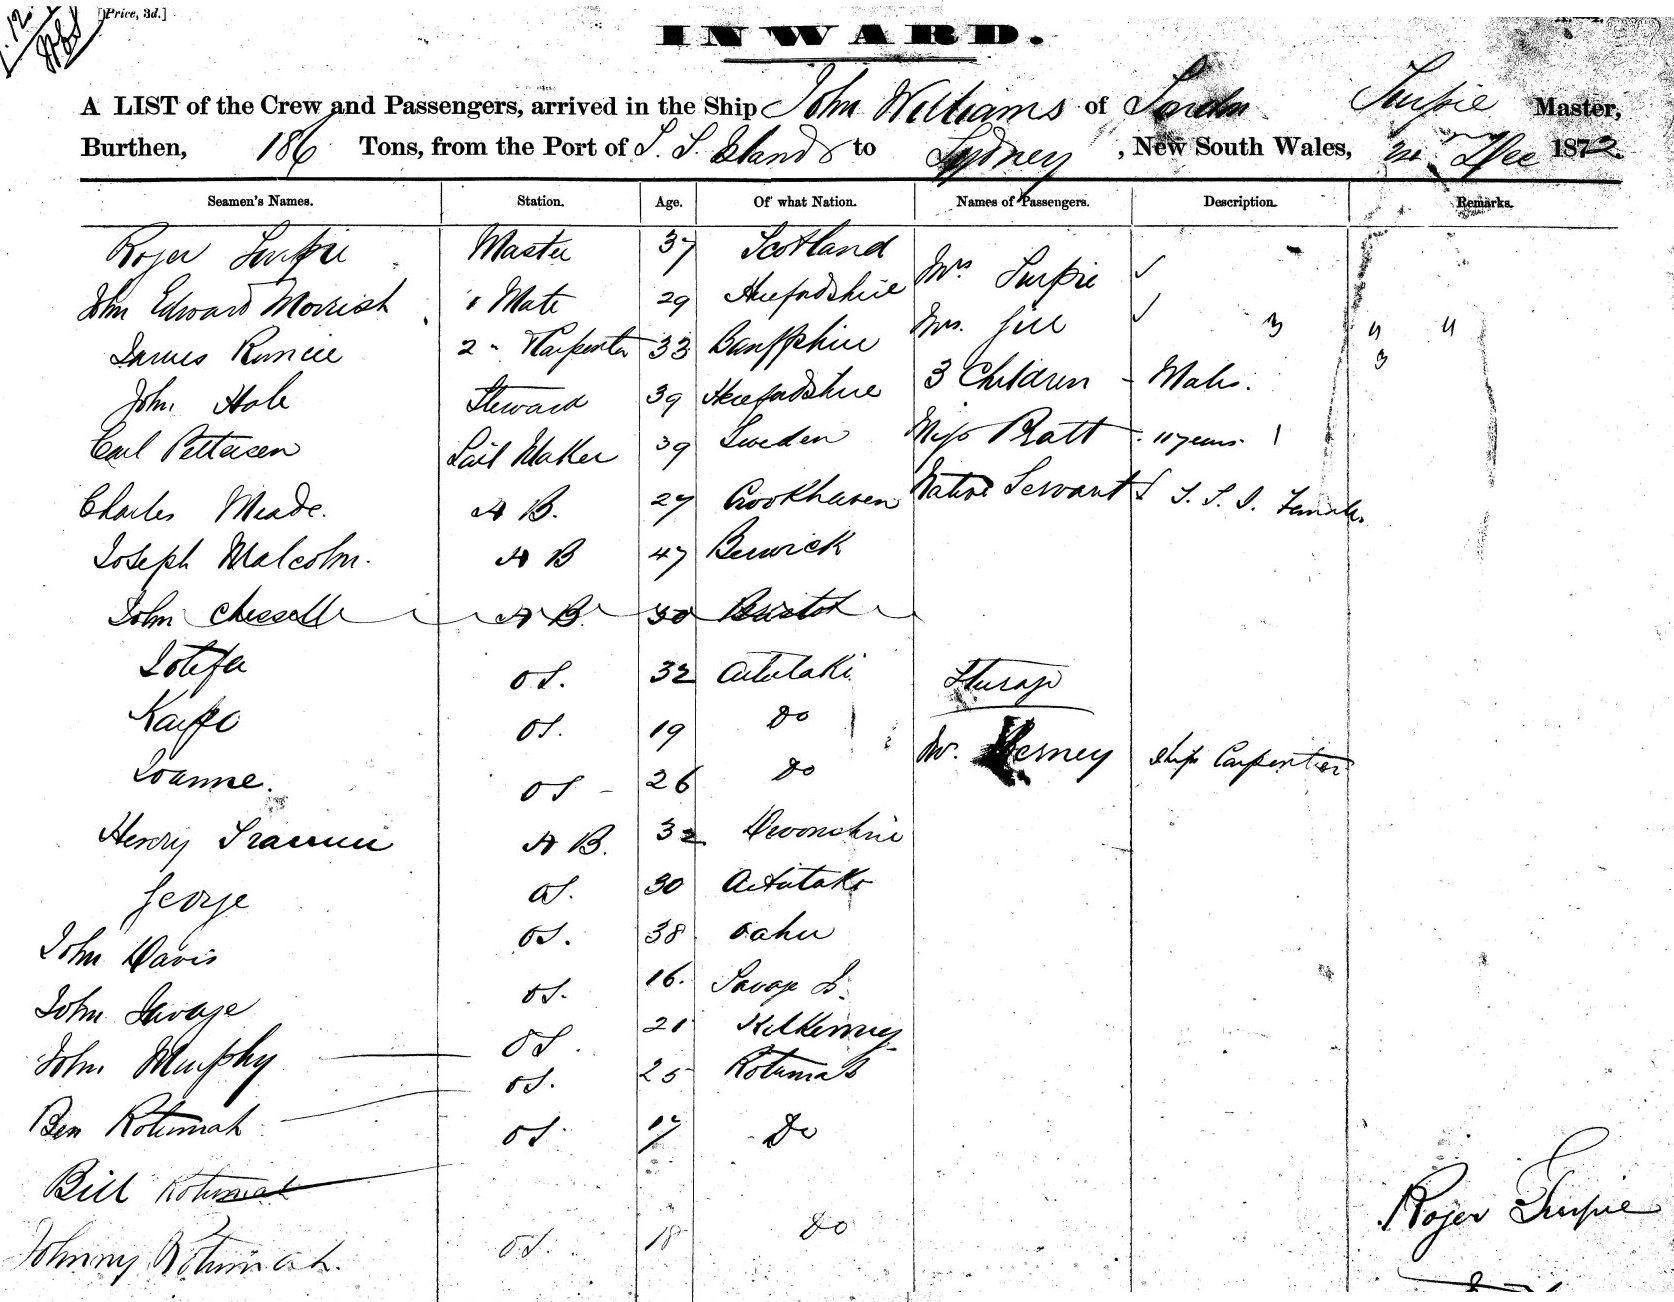 [Price, 3d.]
INWARD.
A LIST of the Crew and Passengers, arrived in the Ship John Williams of London Turpie Master,
Burthen, 186 Tons, from the Port of S. S. Islands to Sydney, New South Wales, Dec 1872
Seamen's Names. Station. Age. Of what Nation. Names of Passengers. Description. Remarks.
Roger Turpie Master 37 Scotland Mrs Turpie ✓
John Edward Morrish 1 Mate 29 Herefordshire Mrs. Gill ✓ 3
James Runcie 2 " Carpenter 33 Banffshire 3 Children - Males.
John Hole Steward 39 Herefordshire Miss Pratt - 11 years. 1
Carl Pettersen Sail Maker 39 Sweden Native Servant S. S. I. Female.
Charles Meade. A B. 27 Crookhaven
Joseph Malcolm. A B 47 Berwick
John A B. 30 Bristol
Iotefa O S. 32 Aitutaki Steerage
Kaipo O S. 19 Do Mr. Kerney Ship Carpenter
Ioanne. O S 26 Do
Henry A B. 32 Devonshire
George O S. 30 Aitutaki
John Davis O S. 38 Oahu
John Savage O S. 16. Savage I.
John Murphy O S. 21 Kilkenny
Ben Rotumah O S. 25 Rotumah
Bill Rotumah O S. 17 Do
Johnny Rotumah. O S. 18 Do
Roger Turpie